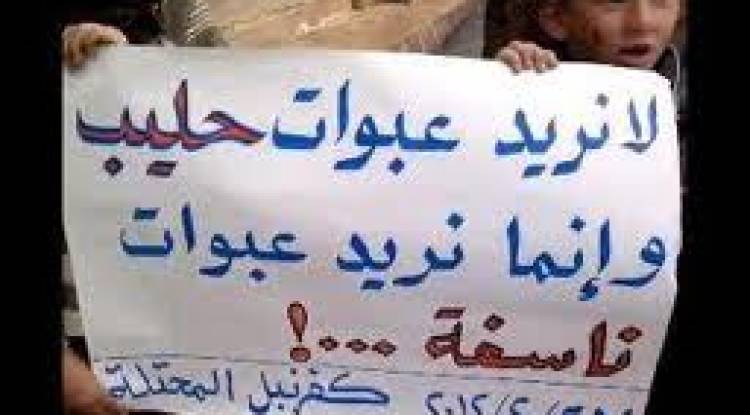 لا نريد عبوات حليب
وإنما نريد عبوات
ناسفة ...!
كفرنبل المحتلة